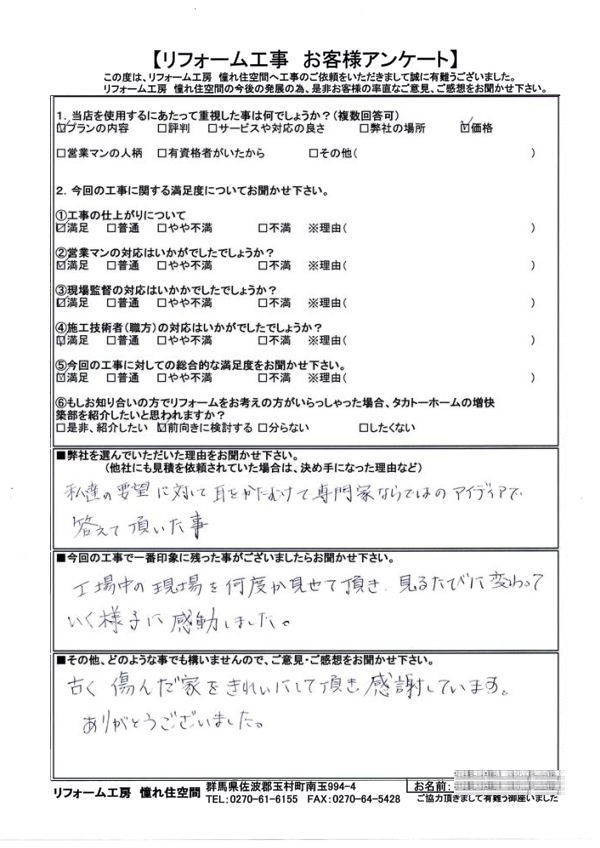 【リフォーム工事　お客様アンケート】
この度は、リフォーム工房　憧れ住空間へ工事のご依頼をいただきまして誠に有難うございました。
リフォーム工房　憧れ住空間の今後の発展の為、是非お客様の率直なご意見、ご感想をお聞かせ下さい。
1. 当店を使用するにあたって重視した事は何でしょうか？(複数回答可)
☑プランの内容　□評判　□サービスや対応の良さ　□弊社の場所　☑価格
□営業マンの人柄　□有資格者がいたから　□その他(　)
2. 今回の工事に関する満足度についてお聞かせ下さい。
①工事の仕上がりについて
☑満足　□普通　□やや不満　□不満　※理由(　)
②営業マンの対応はいかがでしたでしょうか？
☑満足　□普通　□やや不満　□不満　※理由(　)
③現場監督の対応はいかかでしたでしょうか？
☑満足　□普通　□やや不満　□不満　※理由(　)
④施工技術者(職方)の対応はいかがでしたでしょうか？
☑満足　□普通　□やや不満　□不満　※理由(　)
⑤今回の工事に対しての総合的な満足度をお聞かせ下さい。
☑満足　□普通　□やや不満　□不満　※理由(　)
⑥もしお知り合いの方でリフォームをお考えの方がいらっしゃった場合、タカトーホームの増快
築部を紹介したいと思われますか？
□是非、紹介したい　☑前向きに検討する　□分らない　□したくない
■弊社を選んでいただいた理由をお聞かせ下さい。
(他社にも見積を依頼されていた場合は、決め手になった理由など)
私達の要望に対して耳をかたむけて専門家ならではのアイディアで
答えて頂いた事
■今回の工事で一番印象に残った事がございましたらお聞かせ下さい。
工場中の現場を何度か見せて頂き、見るたびに変わって
いく様子に感動しました。
■その他、どのような事でも構いませんので、ご意見・ご感想をお聞かせ下さい。
古く傷んだ家をきれいにして頂き感謝しています。
ありがとうございました。
リフォーム工房　憧れ住空間
群馬県佐波郡玉村町南玉994-4
TEL:0270-61-6155　FAX:0270-64-5428
お名前:
ご協力頂きまして有難う御座いました